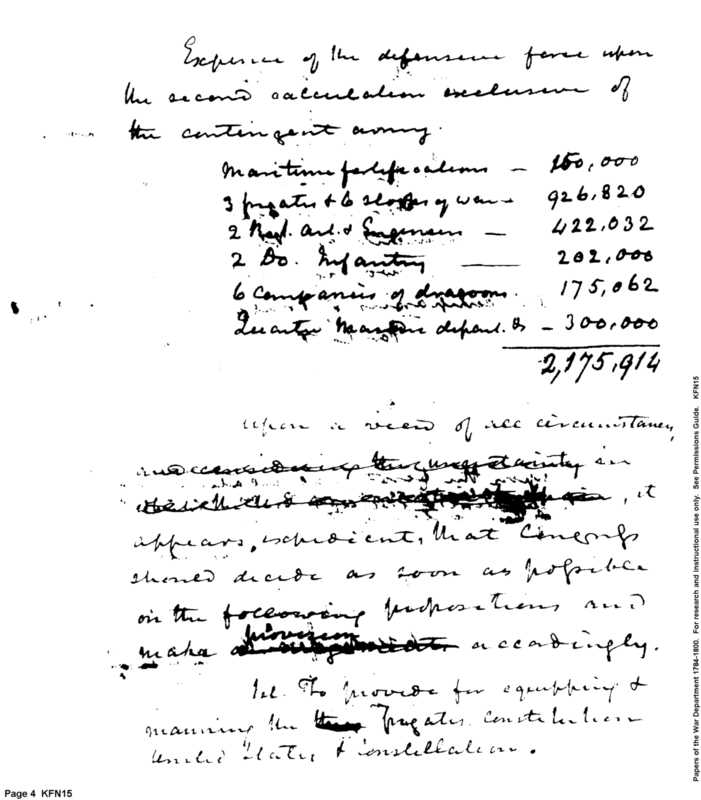 Expense of the defensive force upon
the second calculation exclusive of
the contingent army.
Maritime fortifications — 150,000
3 frigates & 6 sloops of war — 926,820
2 Regt. Art. & Engineers — 422,032
2 Do. Infantry — 202,000
6 Companies of dragoons. 175,062
Quarter Master depart. — 300,000
2,175,914
Upon a view of all circumstances,
and considering the uncertainty in
, it
appears, expedient, that Congress
should decide as soon as possible
on the following propositions and
provision
make accordingly.
1st. To provide for equipping &
manning the three frigates Constitution
United States & Constellation.
Page 4 KFN15
Papers of the War Department 1784-1800. For research and instructional use only. See Permissions Guide. KFN15